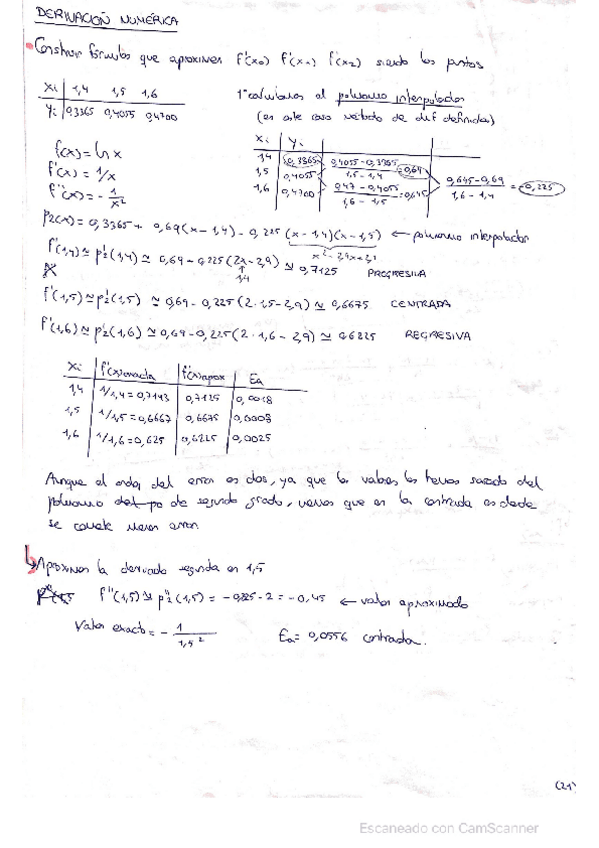 DERIVACIÓN NUMÉRICA
Construir fórmulas que aproximen f'(x₀) f'(x₁) f'(x₂) siendo los puntos
xi | 1,4 1,5 1,6
yi | 0,3365 0,4055 0,4700
1º calculamos el polinomio interpolador
(en este caso método de dif definidas)
xi | yi
1,4 | 0,3365 | (0,4055-0,3365)/(1,5-1,4) = 0,69
1,5 | 0,4055 | (0,645-0,69)/(1,6-1,4) = -0,225
1,6 | 0,4700 | (0,47-0,4055)/(1,6-1,5) = 0,645
f(x) = ln x
f'(x) = 1/x
f''(x) = -1/x²
P₂(x) = 0,3365 + 0,69(x-1,4) - 0,225(x-1,4)(x-1,5) ← polinomio interpolador
x²-2,9x+2,1
f'(1,4) ≃ p'₂(1,4) ≃ 0,69-0,225(2x-2,9) ≃ 0,7125 PROGRESIVA
1,4
f'(1,5) ≃ p'₂(1,5) ≃ 0,69-0,225(2·1,5-2,9) ≃ 0,6675 CENTRADA
f'(1,6) ≃ p'₂(1,6) ≃ 0,69-0,225(2·1,6-2,9) ≃ 0,6225 REGRESIVA
xi | f'(x) exacta | f'(x) aprox | Ea
1,4 | 1/1,4 = 0,7143 | 0,7125 | 0,0018
1,5 | 1/1,5 = 0,6667 | 0,6675 | 0,0008
1,6 | 1/1,6 = 0,625 | 0,6225 | 0,0025
Aunque el orden del error es dos, ya que los valores los hemos sacado del
polinomio de segundo grado, vemos que en la centrada es donde
se comete menos error.
Aproximar la derivada segunda en 1,5
f''(1,5) ≃ p''₂(1,5) = -0,225·2 = -0,45 ← valor aproximado
Valor exacto = -1/1,5² Ea = 0,0056 centrada.
(21)
Escaneado con CamScanner